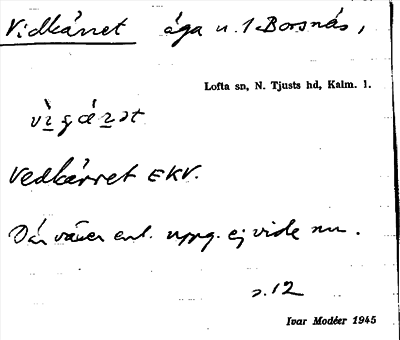 Vidkärret äga u. 1 Borsnäs,
Lofta sn, N. Tjusts hd, Kalm. l.
Vedkärret EKV.
Där växer enl. uppg. ej vide nu.
s. 12
Ivar Modéer 1945